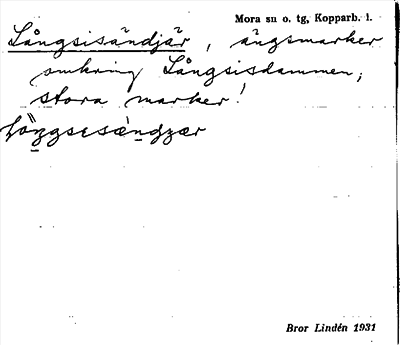 Mora sn o. tg, Kopparb. l.
Långsisändjär, ängsmarker
omkring Långsisdammen;
stora marker!
Bror Lindén 1931